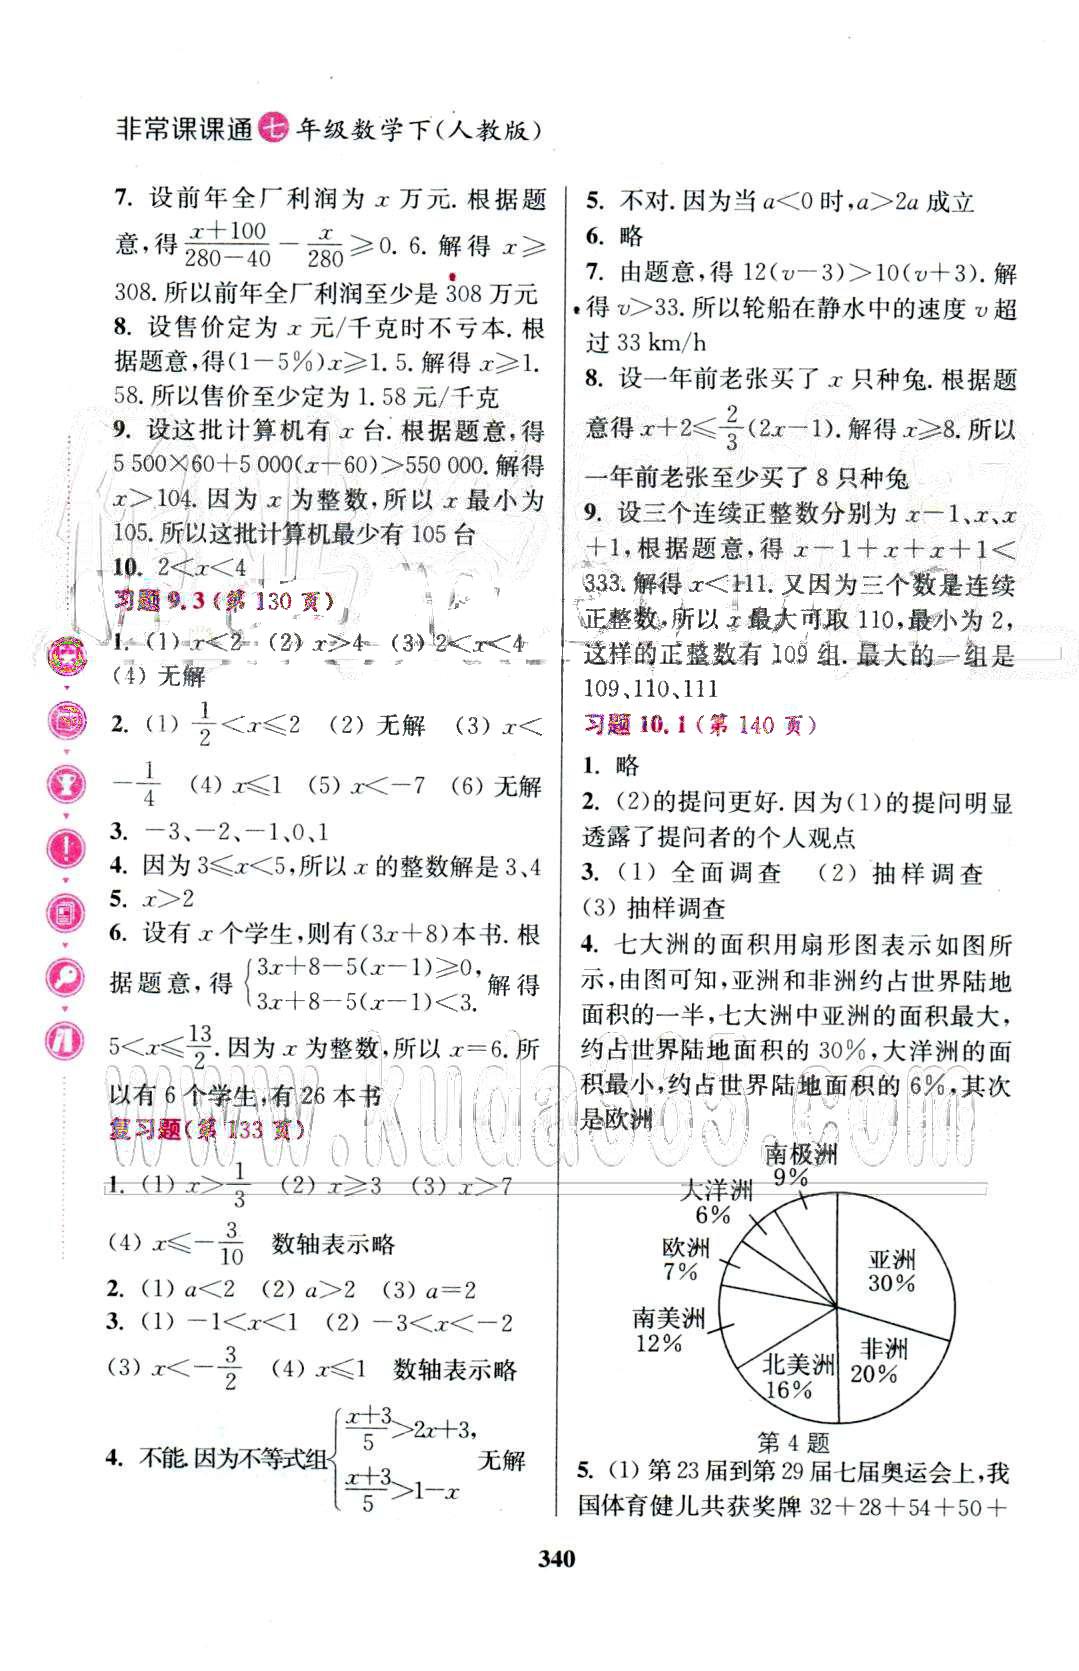 非常课课通七年级数学下(人教版)
7. 设前年全厂利润为 x 万元. 根据题
意,得 \frac{x+100}{280-40} - \frac{x}{280} ≥0. 6. 解得 x≥
308. 所以前年全厂利润至少是 308 万元
8. 设售价定为 x 元/千克时不亏本. 根
据题意,得(1-5%)x≥1. 5. 解得 x≥1.
58. 所以售价至少定为 1. 58 元/千克
9. 设这批计算机有 x 台. 根据题意,得
5 500×60+5 000(x-60)>550 000. 解得
x>104. 因为 x 为整数,所以 x 最小为
105. 所以这批计算机最少有 105 台
10. 2<x<4
习题 9. 3 (第 130 页)
1. (1) x<2 (2) x>4 (3) 2<x<4
(4) 无解
2. (1) \frac{1}{2}<x≤2 (2) 无解 (3) x<
-\frac{1}{4} (4) x≤1 (5) x<-7 (6) 无解
3. -3、-2、-1、0、1
4. 因为 3≤x<5,所以 x 的整数解是 3、4
5. x>2
6. 设有 x 个学生,则有(3x+8)本书. 根
据题意,得 { 3x+8-5(x-1)≥0, 解得
3x+8-5(x-1)<3.
5<x≤\frac{13}{2}. 因为 x 为整数,所以 x=6. 所
以有 6 个学生,有 26 本书
复习题(第 133 页)
1. (1) x>\frac{1}{3} (2) x≥3 (3) x>7
(4) x≤-\frac{3}{10} 数轴表示略
2. (1) a<2 (2) a>2 (3) a=2
3. (1) -1<x<1 (2) -3<x<-2
(3) x<-\frac{3}{2} (4) x≤1 数轴表示略
4. 不能. 因为不等式组 { \frac{x+3}{5}>2x+3, 无解
\frac{x+3}{5}>1-x
5. 不对. 因为当 a<0 时,a>2a 成立
6. 略
7. 由题意,得 12(v-3)>10(v+3). 解
得 v>33. 所以轮船在静水中的速度 v 超
过 33 km/h
8. 设一年前老张买了 x 只种兔. 根据题
意得 x+2≤\frac{2}{3}(2x-1). 解得 x≥8. 所以
一年前老张至少买了 8 只种兔
9. 设三个连续正整数分别为 x-1、x、x
+1,根据题意,得 x-1+x+x+1<
333. 解得 x<111. 又因为三个数是连续
正整数,所以 x 最大可取 110,最小为 2,
这样的正整数有 109 组. 最大的一组是
109、110、111
习题 10. 1 (第 140 页)
1. 略
2. (2)的提问更好. 因为(1)的提问明显
透露了提问者的个人观点
3. (1) 全面调查 (2) 抽样调查
(3) 抽样调查
4. 七大洲的面积用扇形图表示如图所
示,由图可知,亚洲和非洲约占世界陆地
面积的一半,七大洲中亚洲的面积最大,
约占世界陆地面积的 30%,大洋洲的面
积最小,约占世界陆地面积的 6%,其次
是欧洲
南极洲
9%
大洋洲
6%
欧洲
7%
南美洲
12%
北美洲
16%
非洲
20%
亚洲
30%
第 4 题
5. (1) 第 23 届到第 29 届七届奥运会上,我
国体育健儿共获奖牌 32+28+54+50+
340